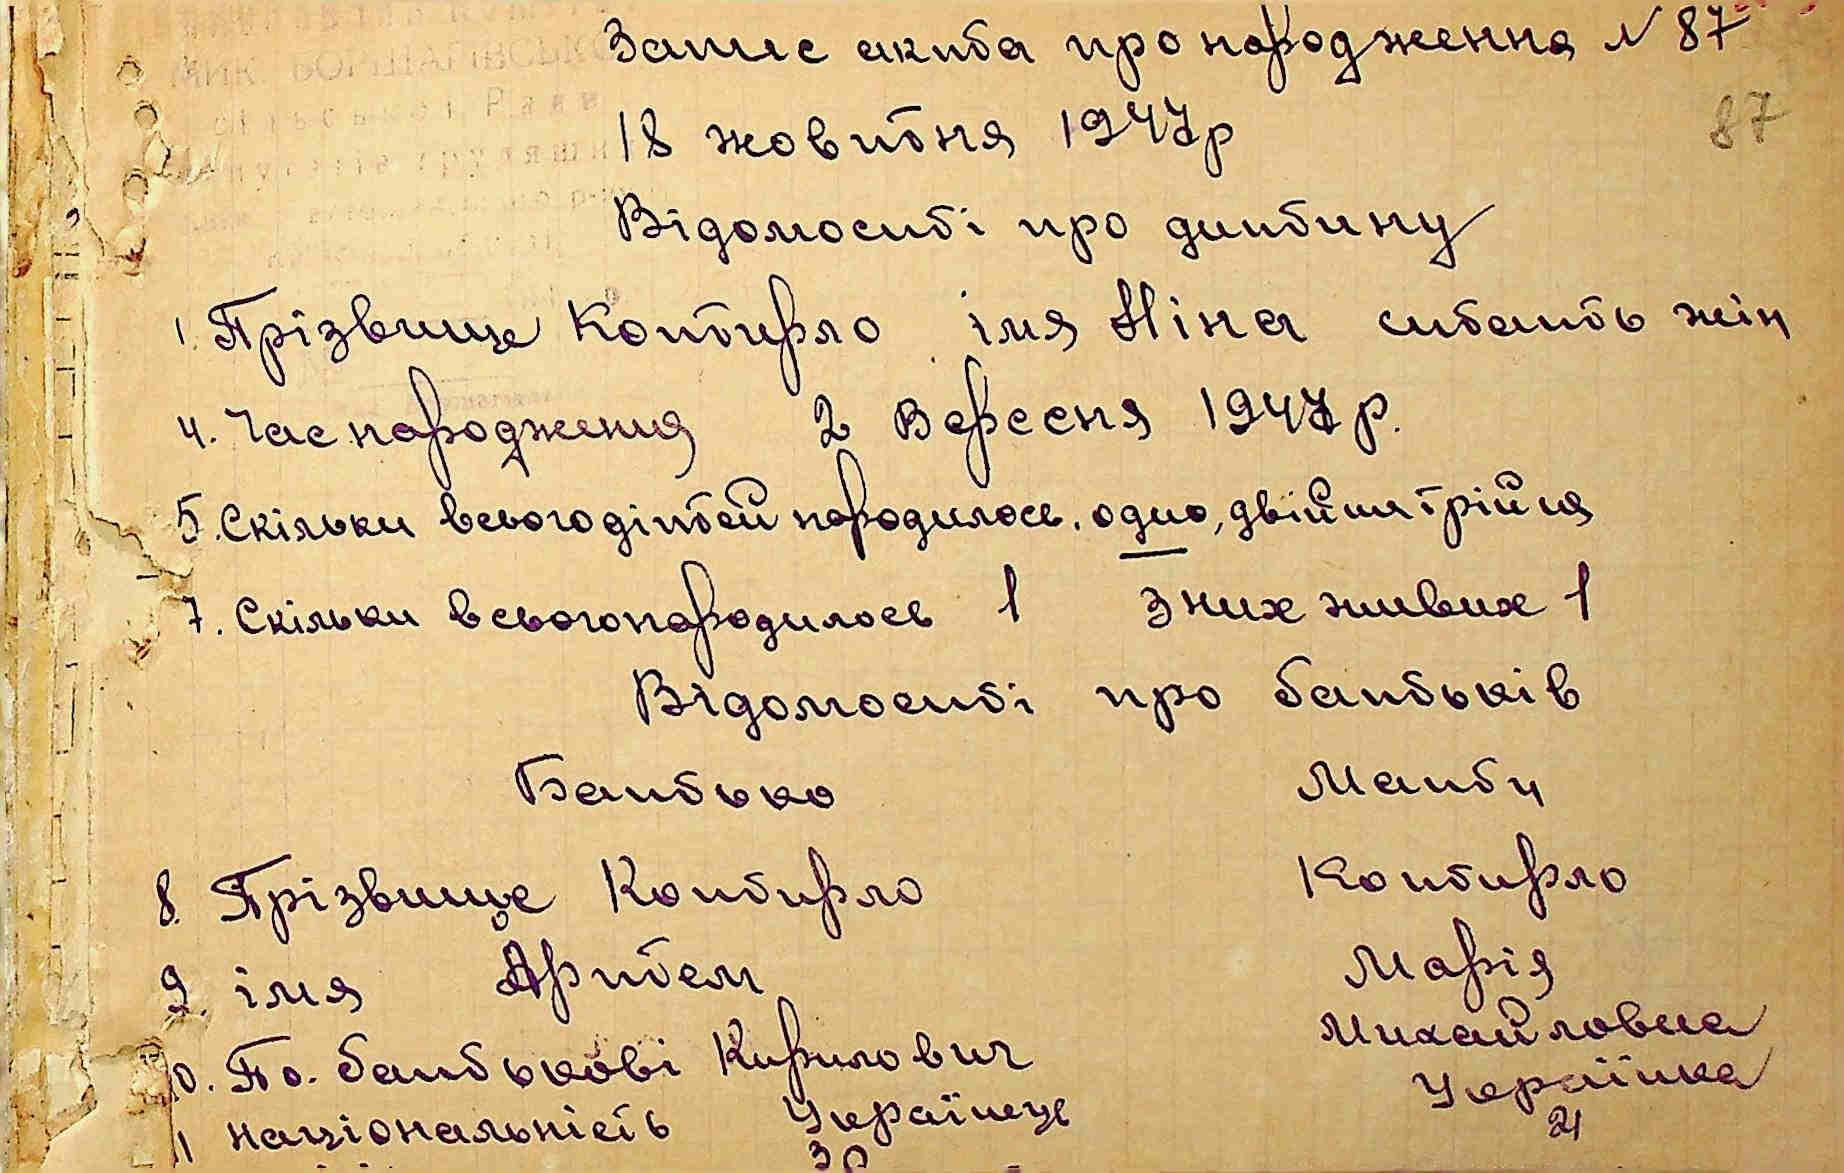 Запис акта про народження № 87
87
18 жовтня 1947р
Відомості про дитину
1. Прізвище Коптирло імя Ніна стать жін
4. Час народження 2 Вересня 1947 р.
5. Скільки всього дітей народилось. одно, двійня трійня
7. Скільки всього народилось 1 з них живих 1
Відомості про батьків
Батько Мати
8. Прізвище Коптирло Коптирло
9. імя Артем Марія
10. По. батькові Кирилович Михайловна
11 національність Українець Українка
30 21